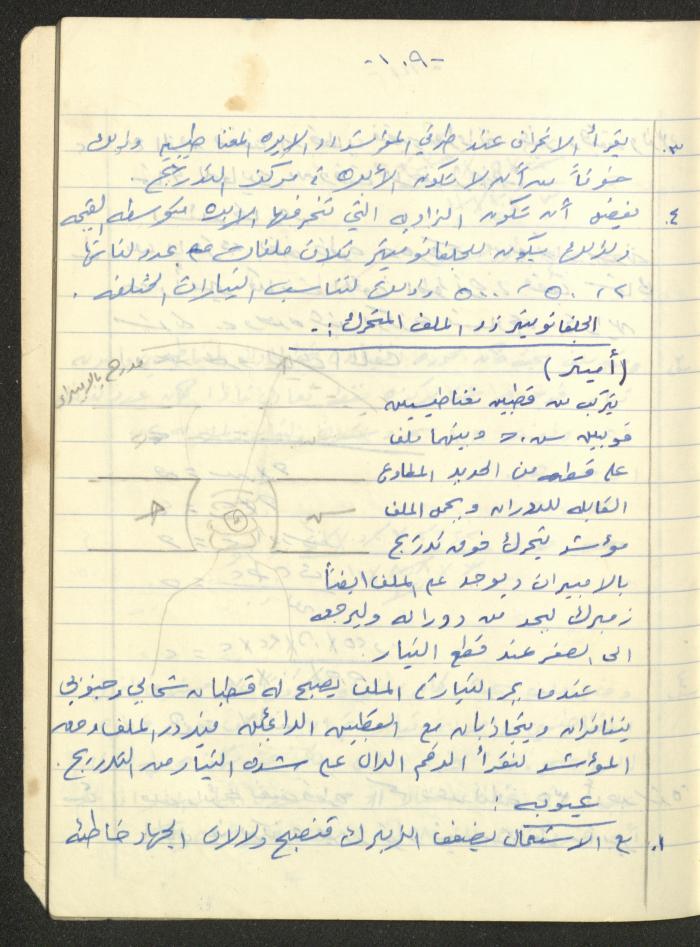 -١٠٩-
٣. يقرأ الانحراف عند طرفي المؤشر او الابره المغناطيسيه وذلك
خوفاً من أن لا تكون الأبره في مركز التدريج.
٤. يفضل أن تكون الزاويه التي تنحرفها الابره متوسطه القيمه
ولذلك يكون للجلفانوميتر ثلاث ملفات عدد لفاتها
٢ ، ٥٠ ، ٥٠٠ وذلك لتناسب التيارات المختلفه .
الجلفانوميتر ذو الملف المتحرك :.
(أميتر)
مدرج بالامبيرات
يتركب من قطبين مغناطيسيين
قويين س، ج وبينهما ملف
على قطعه من الحديد المطاوع
القابله للدوران ويحمل الملف
مؤشر يتحرك فوق تدريج
س
بالامبيرات ويوجد على الملف ايضاً
زمبرك ليحد من دورانه وليرجعه
الى الصفر عند قطع التيار.
عندما يمر التيار في الملف يصبح له قطبان شمالي وجنوبي
يتنافران ويتجاذبان مع القطبين الدائمين فيدور الملف ومعه
المؤشر لنقرأ الرقم الدال على شدة التيار من التدريج.
عيوبه :
١. مع الاستعمال يضعف الزمبرك فتصبح دلالات الجهاز خاطئه